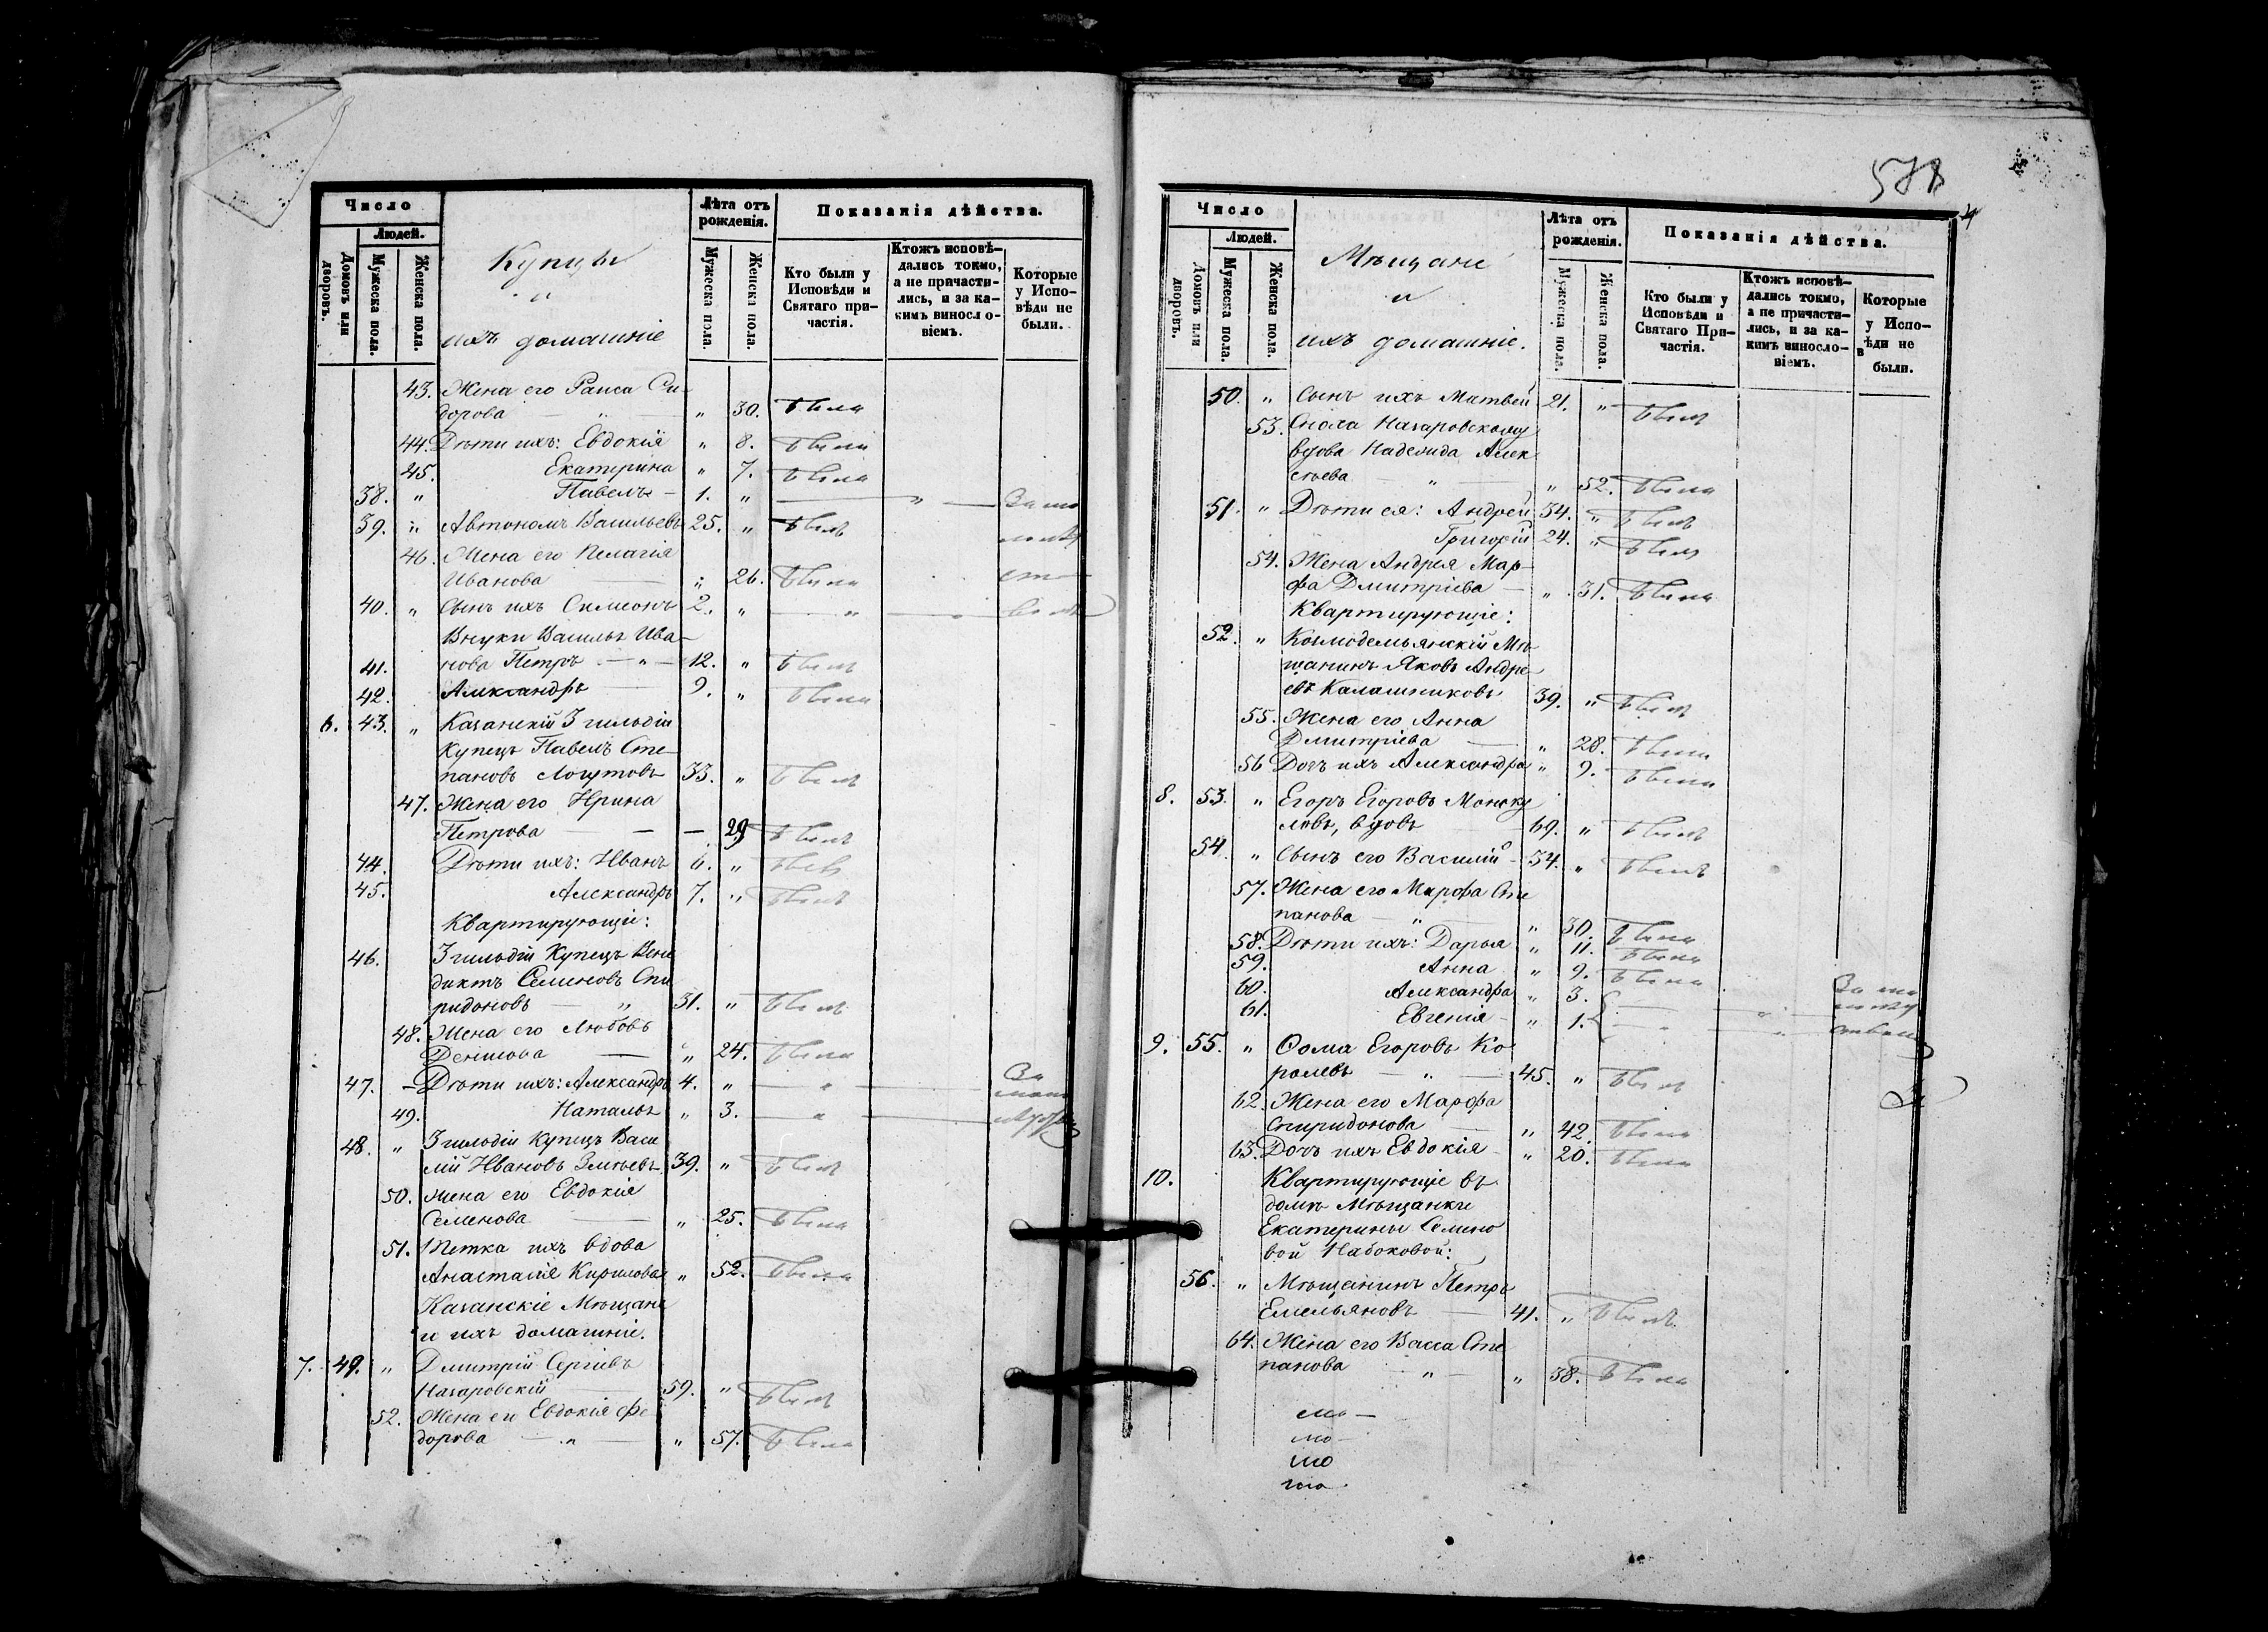 Число
Людей.
Домовъ или дворовъ.
Мужеска пола.
Женска пола.
Купцы
и
ихъ домашніе
Лѣта отъ рожденія.
Мужеска пола.
Женска пола.
Показанія дѣйства.
Кто были у Исповѣди и Святаго причастія.
Ктожъ исповѣдались токмо, а не причастились, и за какимъ винословіемъ.
Которые у Исповѣди не были.
43. Жена его Раиса Си
дорова " 30. Была
44. Дѣти ихъ: Евдокія " 8. Была
45. Екатерина " 7. Была
38. " Павелъ — 1. " — " — За ма
39. " Автономъ Васильевъ 25. " Былъ
46. Жена его Пелагія
Иванова " 26. Была
40. " Сынъ ихъ Симеонъ 2. " — "
Внуки Василья Ива-
41. нова Петръ — " — 12. " Былъ
42. Александръ 9. " Былъ
6. 43. " Казанскій 3 гильдіи
Купецъ Павелъ Сте-
пановъ Логутовъ 33. " Былъ
47. Жена его Ирина
Петрова — — 29 Была
44. Дѣти ихъ: Иванъ 6. " Былъ
45. Александръ 7. " Былъ
Квартирующіе:
46. 3 гильдіи Купецъ Вене
диктъ Семеновъ Спи
ридоновъ — " 31. " Былъ
48. Жена его Любовь
Денисова " 24. Была
47. Дѣти ихъ: Александръ 4. " — " За
49. Наталья " 3. — "
48. " 3 гильдіи Купецъ Васи
лій Ивановъ Змѣевъ 39. " Былъ
50. Жена его Евдокія
Семенова " 25. Была
51. Тетка ихъ вдова
Анастасія Кирилова " 52. Была
Казанскіе Мѣщане
и ихъ домашніе.
7. 49. " Дмитрій Сергіевъ
Назаровскій 59. " Былъ
52. Жена его Евдокія Фе
дорова — " — " 57. Была
578
4
Число
Людей.
Домовъ или дворовъ.
Мужеска пола.
Женска пола.
Мѣщане
и
ихъ домашніе.
Лѣта отъ рожденія.
Мужеска пола.
Женска пола.
Показанія дѣйства.
Кто были у Исповѣди и Святаго Причастія.
Ктожъ исповѣдались токмо, а не причастились, и за какимъ винословіемъ.
Которые у Исповѣди не были.
50. " Сынъ ихъ Матвей 21. " Былъ
53. Сноха Назаровскому
вдова Надежда Алек
сѣева " " 52. Была
51. " Дѣти ея: Андрей 34. " Былъ
Григорій 24. " Былъ
54. Жена Андрея Мар-
фа Дмитріева — " 31. Была
Квартирующіе:
52. " Козмодемьянскій Мѣ
щанинъ Яковъ Андре
евъ Калашниковъ 39. " Былъ
55. Жена его Анна
Дмитріева — " 28. Была
56 Дочь ихъ Александра " 9. Была
8. 53. " Егоръ Егоровъ
вдовъ 69. " Былъ
54. " Сынъ его Василій — 34. " Былъ
57. Жена его Марфа Сте
панова — " " 30. Была
58. Дѣти ихъ: Дарья " 11. Была
59. Анна " 9. Была
60. Александра " 3. — " За ма
61. Евгенія " 1. — "
9. 55. " Ѳома Егоровъ Ко
ролевъ — " — 45. " Былъ
62. Жена его Марфа
Спиридонова " 42. Была
63. Дочь ихъ Евдокія " 20. Была
10. Квартирующіе въ
домѣ Мѣщанки
Екатерины Семено
вой Набоковой:
56. " Мѣщанинъ Петръ
Емельяновъ — 41. " Былъ
64. Жена его Васса Сте
панова — " — " 38. Была